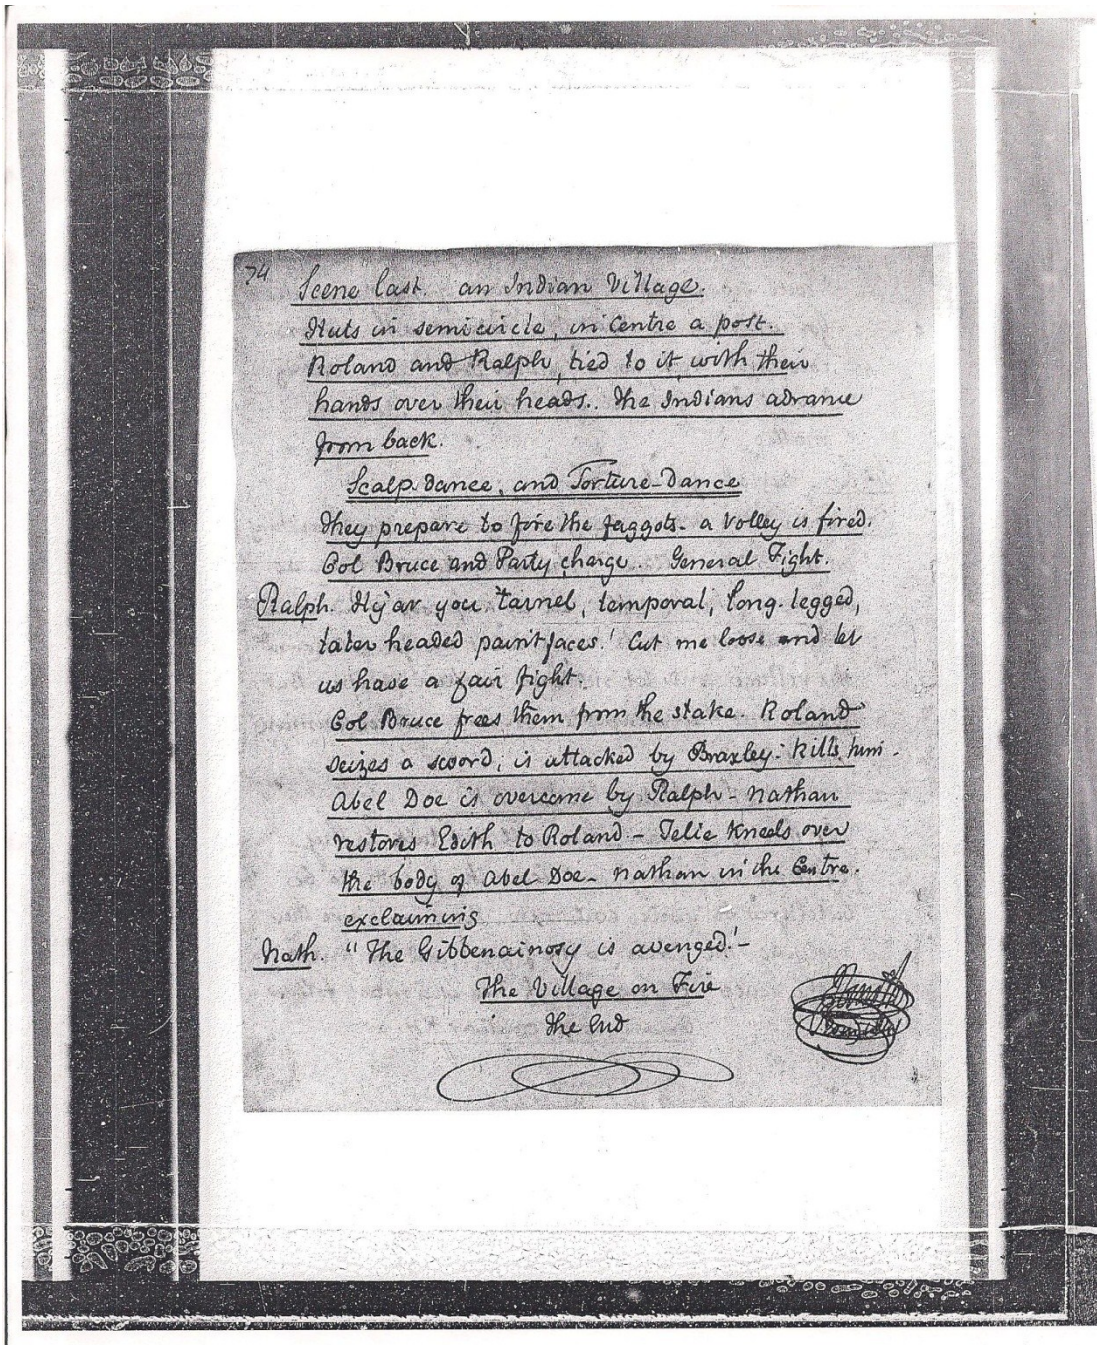 74
Scene last. an Indian Village.
Huts in semicircle, in Centre a post.
Roland and Ralph, tied to it, with their
hands over their heads.. The Indians advance
from back.
Scalp dance, and Torture-Dance
They prepare to fire the faggots. a volley is fired.
Col Bruce and Party charge. General Fight.
Ralph. Hy'ar you tarnel, temporal, long. legged,
tater headed paint faces! Cut me loose and let
us have a fair fight.
Col Bruce frees them from the stake. Roland
seizes a sword, is attacked by Braxley: kills him.
Abel Doe is overcome by Ralph - Nathan
restores Edith to Roland - Telie kneels over
the body of Abel Doe - Nathan in the Centre.
exclaiming
Nath. "The Gibbenainosy is avenged! -
The Village on Fire
The End